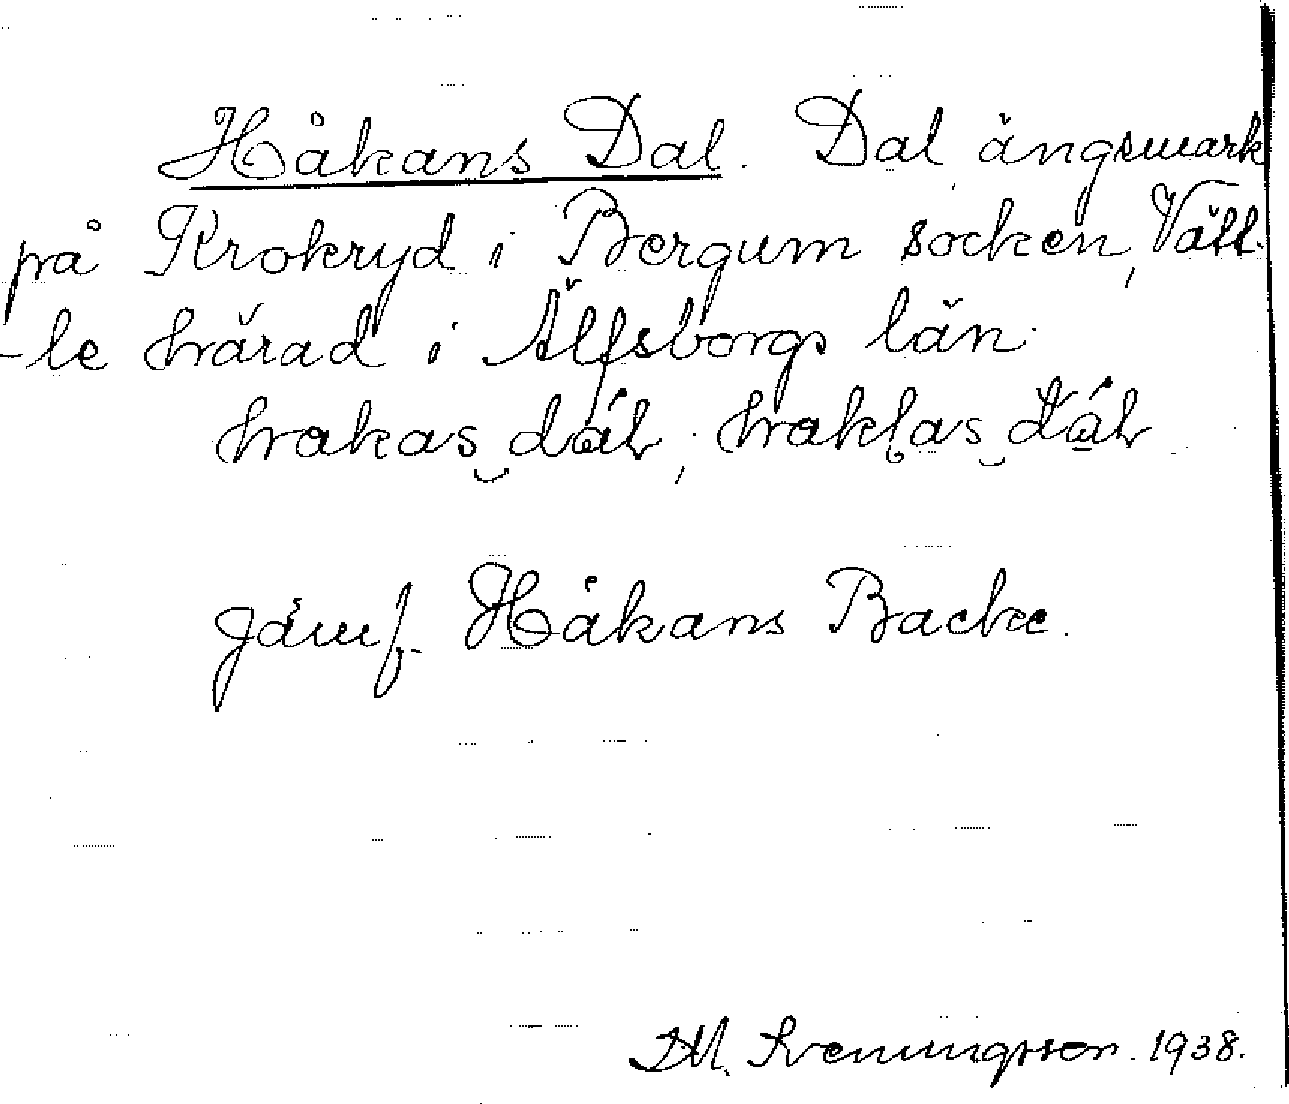 Håkans Dal. Dal ängsmark
på Krokryd i Bergum socken, Vätt-
-le härad i Älfsborgs län.
hakas dáł, haklas dáł
Jämf. Håkans Backe.
D.M. Sveningsson. 1938.